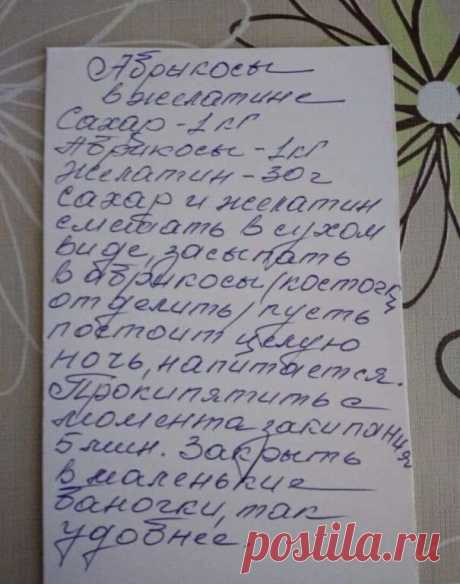 Абрыкосы
в желатине
Сахар - 1 кг
Абрикосы - 1 кг
Желатин - 30 г
Сахар и желатин
смешать в сухом
виде, засыпать
в абрикосы /косточки
отделить/ пусть
постоит целую
ночь, напитается.
Прокипятить с
момента закипания
5 мин. Закрыть
в маленькие
баночки, так
удобнее
postila.ru